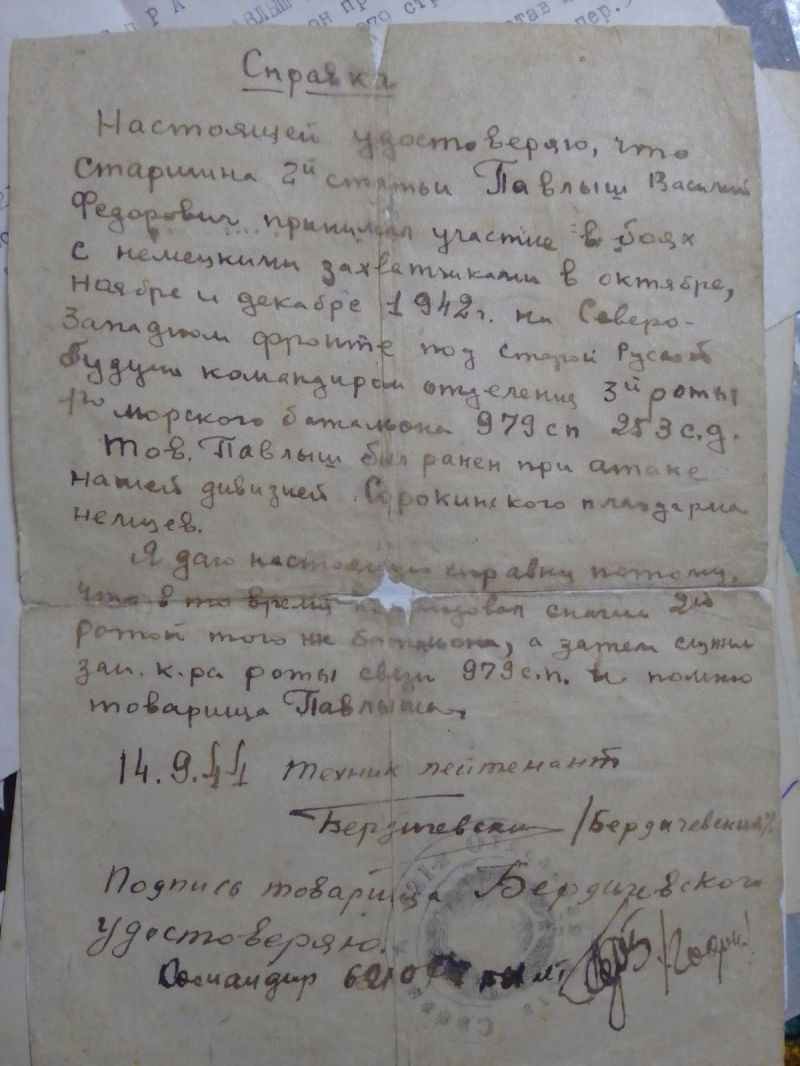 Справка
Настоящей удостоверяю, что
старшина 2й статьи Павлыш Василий
Федорович принимал участие в боях
с немецкими захватчиками в октябре,
ноябре и декабре 1942г. на Северо-
Западном фронте под Старой Руссой
будучи командиром отделения 3й роты
1го морского батальона 979 сп 253 с.д.
Тов. Павлыш был ранен при атаке
нашей дивизией Сорокинского плацдарма
немцев.
Я даю настоящую справку потому,
что в то время командовал сначала 2й
ротой того же батальона, а затем служил
зам. к-ра роты связи 979 с.п. и помню
товарища Павлыша.
14.9.44 техник лейтенант
Бердичевский /Бердичевский/.
Подпись товарища Бердичевского
удостоверяю.
Командир